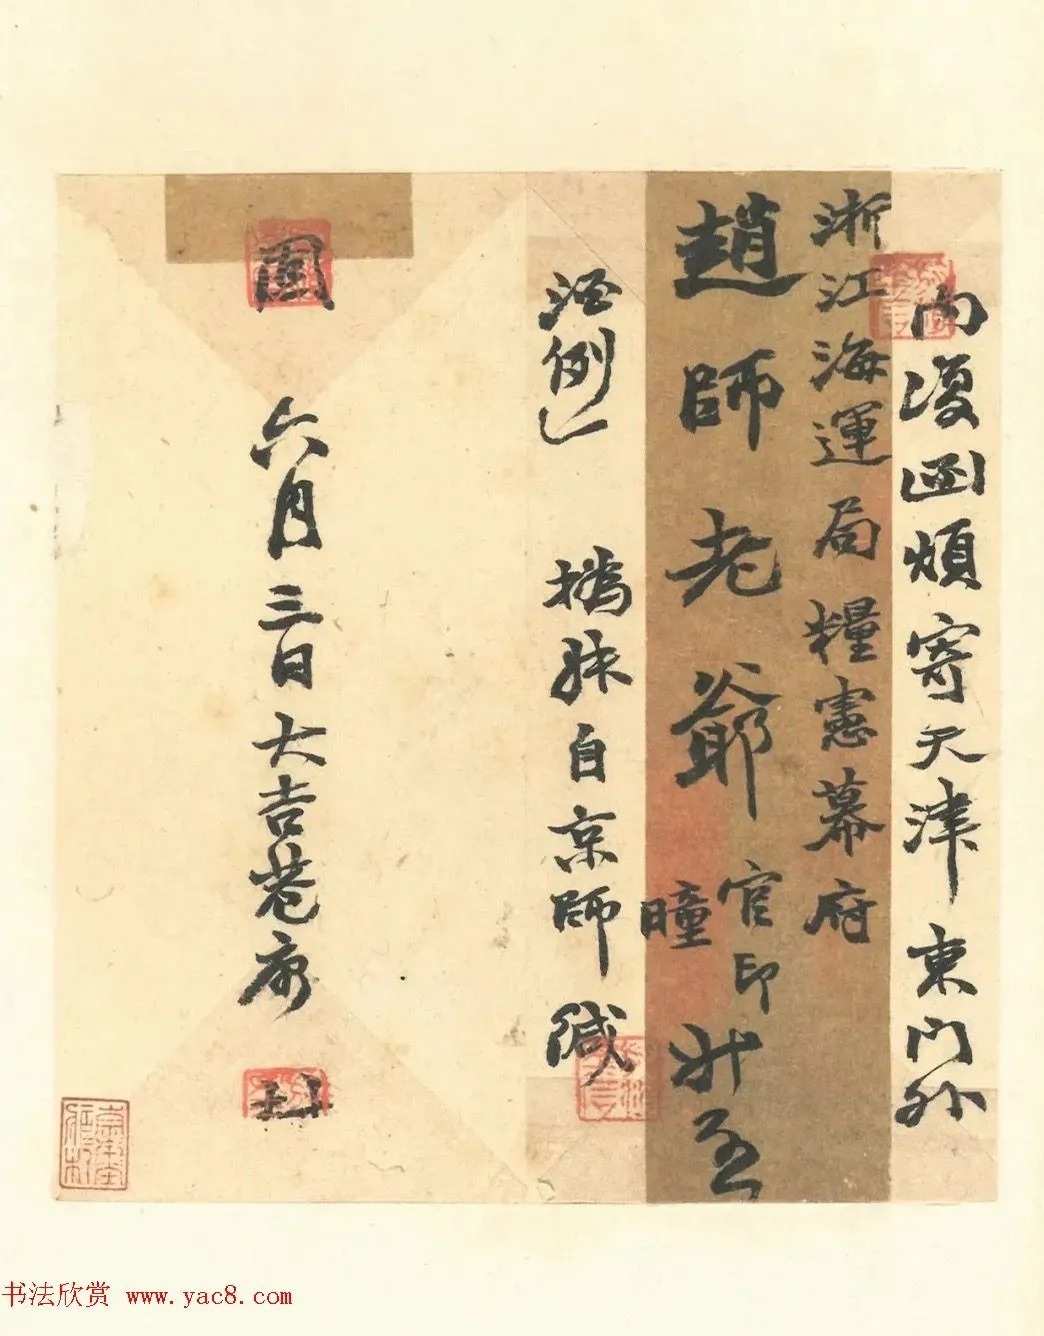 内復函煩寄天津東門外
浙江海運局糧憲幕府
趙師老爺官印瞳升至
酒例
撝叔自京師緘
固
六月三日大吉巷府
封
书法欣赏 www.yac8.com